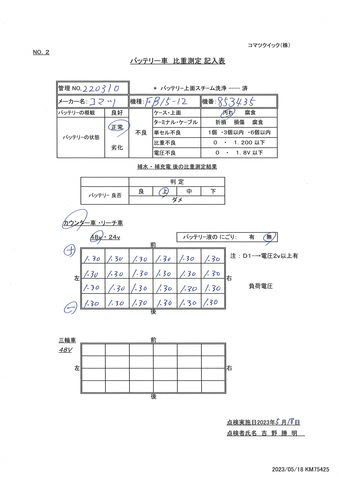 コマツクイック(株)
NO. 2
バッテリー車 比重測定 記入表
管理NO. 220310
＊ バッテリー上面スチーム洗浄 ―― 済
メーカー名 コマツ 機種: FB15-12 機番: 853435
バッテリーの概観 良好 ケース・上面 汚れ 腐食
バッテリーの状態 正常 劣化 不良
ターミナル・ケーブル 折損 損傷 腐食
単セル不良 1個 ・3個以内 ・6個以内
比重不良 0 ・ 1.200 以下
電圧不良 0 ・ 1.8V以下
補水・補充電 後の比重測定結果
判 定
バッテリー 良否 良 上 中 下
ダメ
カウンター車・リーチ車
48v・24v バッテリー液の にごり: 有 無
前
＋ 1.30 1.30 1.30 1.30 1.30 1.30 注：D1―→電圧2v以上有
左 1.30 1.30 1.30 1.30 1.30 1.30 右
1.30 1.30 1.30 1.30 1.30 1.30 負荷電圧
－ 1.30 1.30 1.30 1.30 1.30 1.30
後
三輪車 前
48V
左 右
後
点検実施日2023年5月18日
点検者氏名 吉 野 勝 明
2023/05/18 KM75425